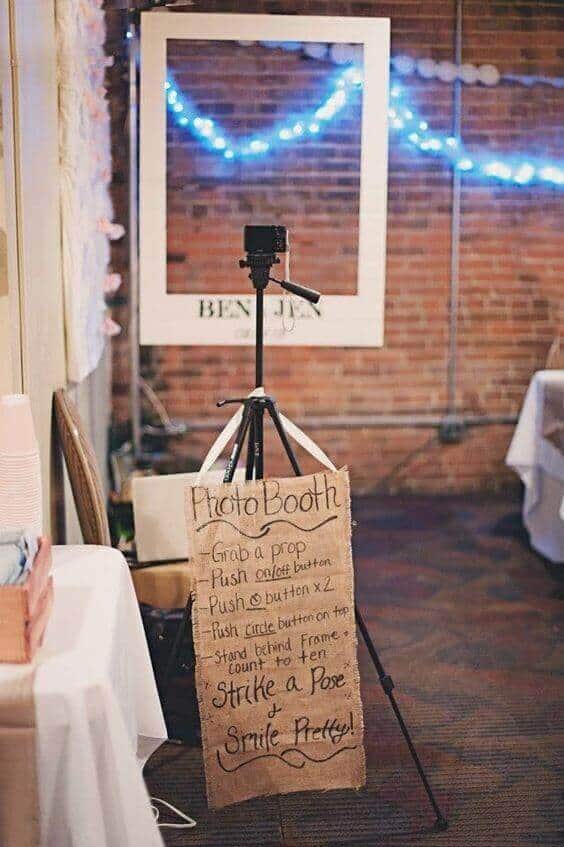 BEN JEN
Photo Booth
-Grab a prop
-Push on/off button
-Push button x2
-Push circle button on top
-Stand behind Frame +
count to ten
Strike a Pose
&
Smile Pretty!